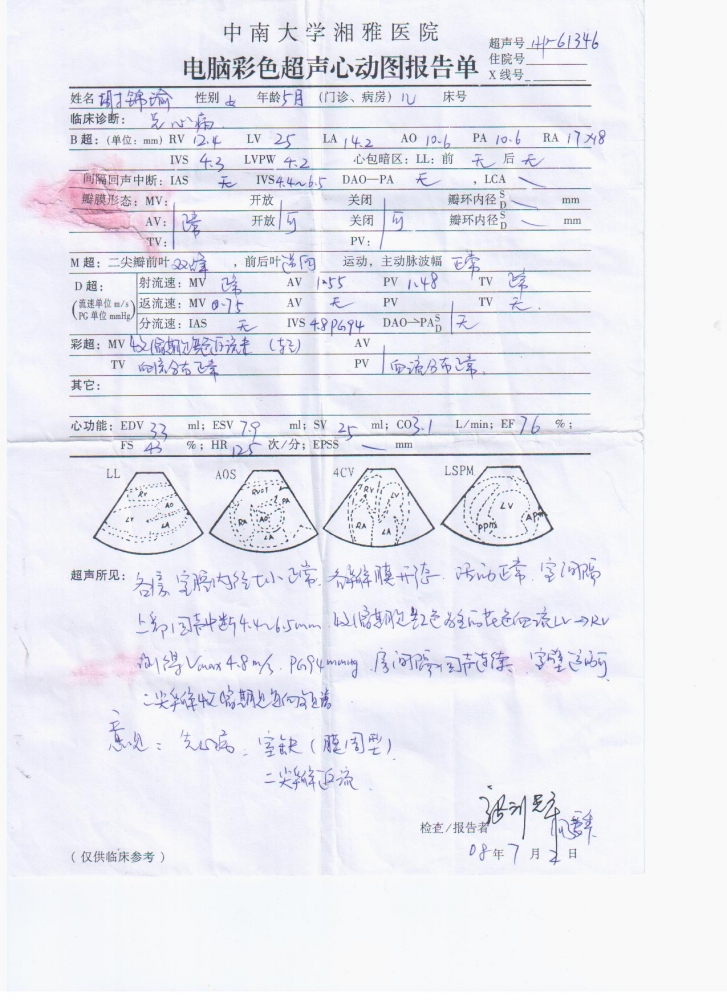 中南大学湘雅医院
电脑彩色超声心动图报告单
超声号 61346
住院号
X线号
姓名 胡锦瑜 性别 女 年龄 5月 (门诊、病房) 儿 床号
临床诊断: 先心病
B超: (单位: mm) RV 12.4 LV 25 LA 14.2 AO 10.6 PA 10.6 RA 17×18
IVS 4.3 LVPW 4.2 心包暗区: LL: 前 无 后 无
间隔回声中断: IAS 无 IVS 4.4~6.5 DAO—PA 无 , LCA
瓣膜形态: MV: 开放 关闭 瓣环内径 S D mm
AV: 正常 开放 可 关闭 可 瓣环内径 S D mm
TV: PV:
M超: 二尖瓣前叶 双峰 , 前后叶 逆向 运动, 主动脉波幅 正常
D超: (流速单位 m/s PG单位 mmHg)
射流速: MV 正常 AV 1.55 PV 1.48 TV 正常
返流速: MV 0.75 AV 无 PV TV 无.
分流速: IAS 无 IVS 4.8 PG94 DAO—PA S D 无
彩超: MV 收缩期 返流束 AV
TV 血流分布正常 PV 血流分布正常.
其它:
心功能: EDV 33 ml; ESV 7.9 ml; SV 25 ml; CO 3.1 L/min; EF 76 %;
FS 43 %; HR 125 次/分; EPSS mm
LL AOS 4CV LSPM
RV AO LV LA
RVOT PA RA AO LA
RV LV RA LA
LV PPM APM
超声所见: 各房室腔内径大小正常. 各瓣膜开放、活动正常. 室间隔
上部回声中断4.4~6.5mm 收缩期 红色 血流LV→RV
测得Vmax4.8m/s. PG94mmHg 房间隔回声连续. 室壁运动可
二尖瓣收缩期
意见: 先心病. 室缺 (膜周型)
二尖瓣返流.
检查/报告者
08年7月2日
(仅供临床参考)